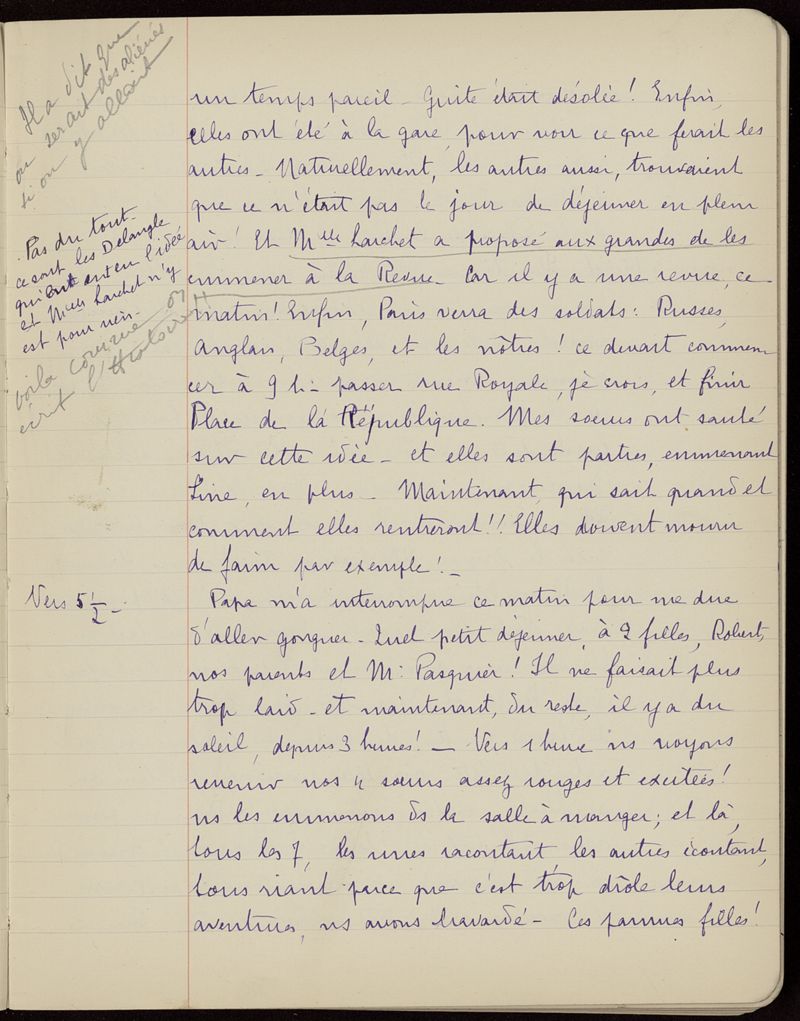 Il a dit que
on serait des aliénés
si on y allait
Pas du tout -
ce sont les Delangle
qui ont eu l'idée
et Melle Larchet n'y
est pour rien -
Voilà comme on
écrit l'Histoire !!
un temps pareil - Guite était désolée ! Enfin,
elles ont été à la gare, pour voir ce que ferait les
autres - Naturellement, les autres aussi, trouvaient
que ce n'était pas le jour de déjeuner en plein
air ! Et Melle Larchet a proposé aux grandes de les
emmener à la Revue - Car il y a une revue, ce
matin ! Enfin, Paris verra des soldats : Russes,
Anglais, Belges, et les nôtres ! ce devait commen-
cer à 9 h - passer rue Royale, je crois, et finir
Place de la République. Mes sœurs ont sauté
sur cette idée - et elles sont parties, emmenant
Line, en plus - Maintenant, qui sait quand et
comment elles rentreront !! Elles doivent mourir
de faim par exemple ! -
Vers 5 1/2 -
Papa m'a interrompue ce matin pour me dire
d'aller - Quel petit déjeuner, à 2 filles, Robert,
nos parents et Mr Pasquier ! Il ne faisait plus
trop laid - et maintenant, du reste, il y a du
soleil, depuis 3 heures ! - Vers 1 heure ns voyons
revenir nos 4 sœurs assez rouges et excitées !
ns les emmenons ds la salle à manger ; et là,
tous les 7, les unes racontant, les autres écoutant,
tous riant parce que c'est trop drôle leurs
aventures, ns avons bavardé - Ces pauvres filles !